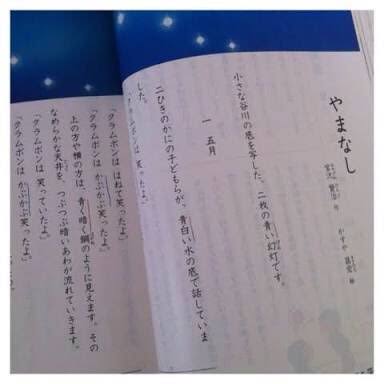 やまなし
宮沢 賢治 作
かすや 昌宏 絵
小さな谷川の底を写した、二枚の青い幻灯です。
一 五月
二ひきのかにの子どもらが、青白い水の底で話していま
した。
「クラムボンは 笑ったよ。」
「クラムボンは はねて笑ったよ。」
「クラムボンは かぷかぷ笑ったよ。」
上の方や横の方は、青く暗く鋼のように見えます。その
なめらかな天井を、つぶつぶ暗いあわが流れていきます。
「クラムボンは 笑っていたよ。」
「クラムボンは かぷかぷ笑ったよ。」